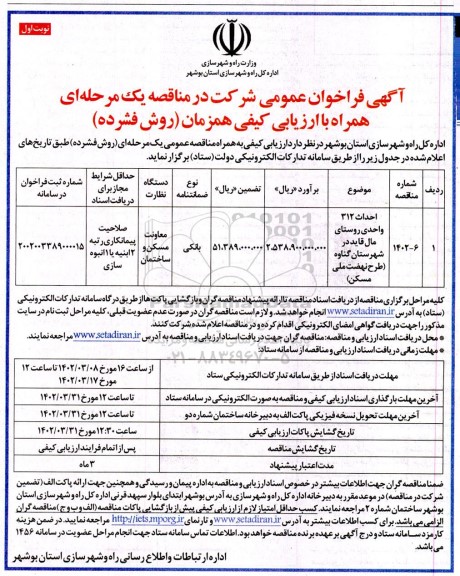 نوبت اول
وزارت راه و شهرسازی
اداره کل راه و شهرسازی استان بوشهر
آگهی فراخوان عمومی شرکت در مناقصه یک مرحله‌ای
همراه با ارزیابی کیفی همزمان (روش فشرده)
اداره کل راه و شهرسازی استان بوشهر در نظر دارد ارزیابی کیفی به همراه مناقصه عمومی یک مرحله‌ای (روش فشرده) طبق تاریخ‌های
اعلام شده در جدول زیر را از طریق سامانه تدارکات الکترونیکی دولت (ستاد) برگزار نماید.
ردیف | شماره مناقصه | موضوع | برآورد «ریال» | تضمین «ریال» | نوع ضمانتنامه | دستگاه نظارت | حداقل شرایط مجاز برای دریافت اسناد | شماره ثبت فراخوان در سامانه
۱ | ۱۴۰۲-۶ | احداث ۳۱۲ واحدی روستای مال قاید در شهرستان گناوه (طرح نهضت ملی مسکن) | ۲.۵۳۸.۹۰۰.۰۰۰.۰۰۰ | ۵۱.۳۸۹.۰۰۰.۰۰۰ | بانکی | معاونت مسکن و ساختمان | صلاحیت پیمانکاری رتبه ۲ ابنیه یا ۱ انبوه سازی | ۲۰۰۲۰۰۳۳۸۹۰۰۰۰۱۵
کلیه مراحل برگزاری مناقصه از دریافت اسناد مناقصه تا ارائه پیشنهاد مناقصه گران و بازگشایی پاکت‌ها از طریق درگاه سامانه تدارکات الکترونیکی
(ستاد) به آدرس www.setadiran.ir انجام خواهد شد. و لازم است مناقصه گران در صورت عدم عضویت قبلی، کلیه مراحل ثبت نام در سایت
مذکور را جهت دریافت گواهی امضای الکترونیکی اقدام کرده و در مناقصه اعلام شده شرکت کنند.
* محل دریافت اسناد ارزیابی و مناقصه: مناقصه گران جهت دریافت اسناد ارزیابی و مناقصه به آدرس www.setadiran.ir مراجعه نمایند.
* مهلت زمانی دریافت اسناد ارزیابی و مناقصه از سامانه ستاد:
۰۲۱-۸۸۳۴۹۶۷۰-۵
مهلت دریافت اسناد از طریق سامانه تدارکات الکترونیکی ستاد | از ساعت ۱۶ مورخ ۱۴۰۲/۰۳/۰۸ تا ساعت ۱۲ مورخ ۱۴۰۲/۰۳/۱۷
آخرین مهلت بارگذاری اسناد ارزیابی کیفی و مناقصه به صورت الکترونیکی در سامانه ستاد | تا ساعت ۱۲ مورخ ۱۴۰۲/۰۳/۳۱
آخرین مهلت تحویل نسخه فیزیکی پاکت الف به دبیرخانه ساختمان شماره دو | تا ساعت ۱۲ مورخ ۱۴۰۲/۰۳/۳۱
تاریخ گشایش پاکات ارزیابی کیفی | ساعت ۱۲:۳۰ مورخ ۱۴۰۲/۰۳/۳۱
تاریخ گشایش مناقصه | پس از اتمام فرایند ارزیابی کیفی
مدت اعتبار پیشنهاد | ۳ ماه
ضمنا مناقصه گران جهت اطلاعات بیشتر در خصوص اسناد ارزیابی و مناقصه به اداره پیمان و رسیدگی و همچنین جهت ارائه پاکت الف (تضمین
شرکت در مناقصه) در موعد مقرر به دبیرخانه اداره کل راه و شهرسازی به آدرس بوشهر ابتدای بلوار سپهبد قرنی اداره کل راه و شهرسازی استان
بوشهر ساختمان شماره ۲ مراجعه نمایند. کسب حداقل امتیاز لازم از ارزیابی کیفی پیش از بازگشایی پاکات مناقصه (الف و ب و ج) مناقصه گران
الزامی می‌باشد. برای کسب اطلاعات بیشتر به آدرس www.setadiran.ir و تارنمای http://iets.mporg.ir مراجعه نمایند. در ضمن هزینه
کارمزد سامانه ستاد و درج آگهی بر عهده برنده مناقصه خواهد بود. اطلاعات تماس سامانه ستاد جهت انجام مراحل عضویت در سامانه ۱۴۵۶
می‌باشد.
اداره ارتباطات و اطلاع رسانی راه و شهرسازی استان بوشهر